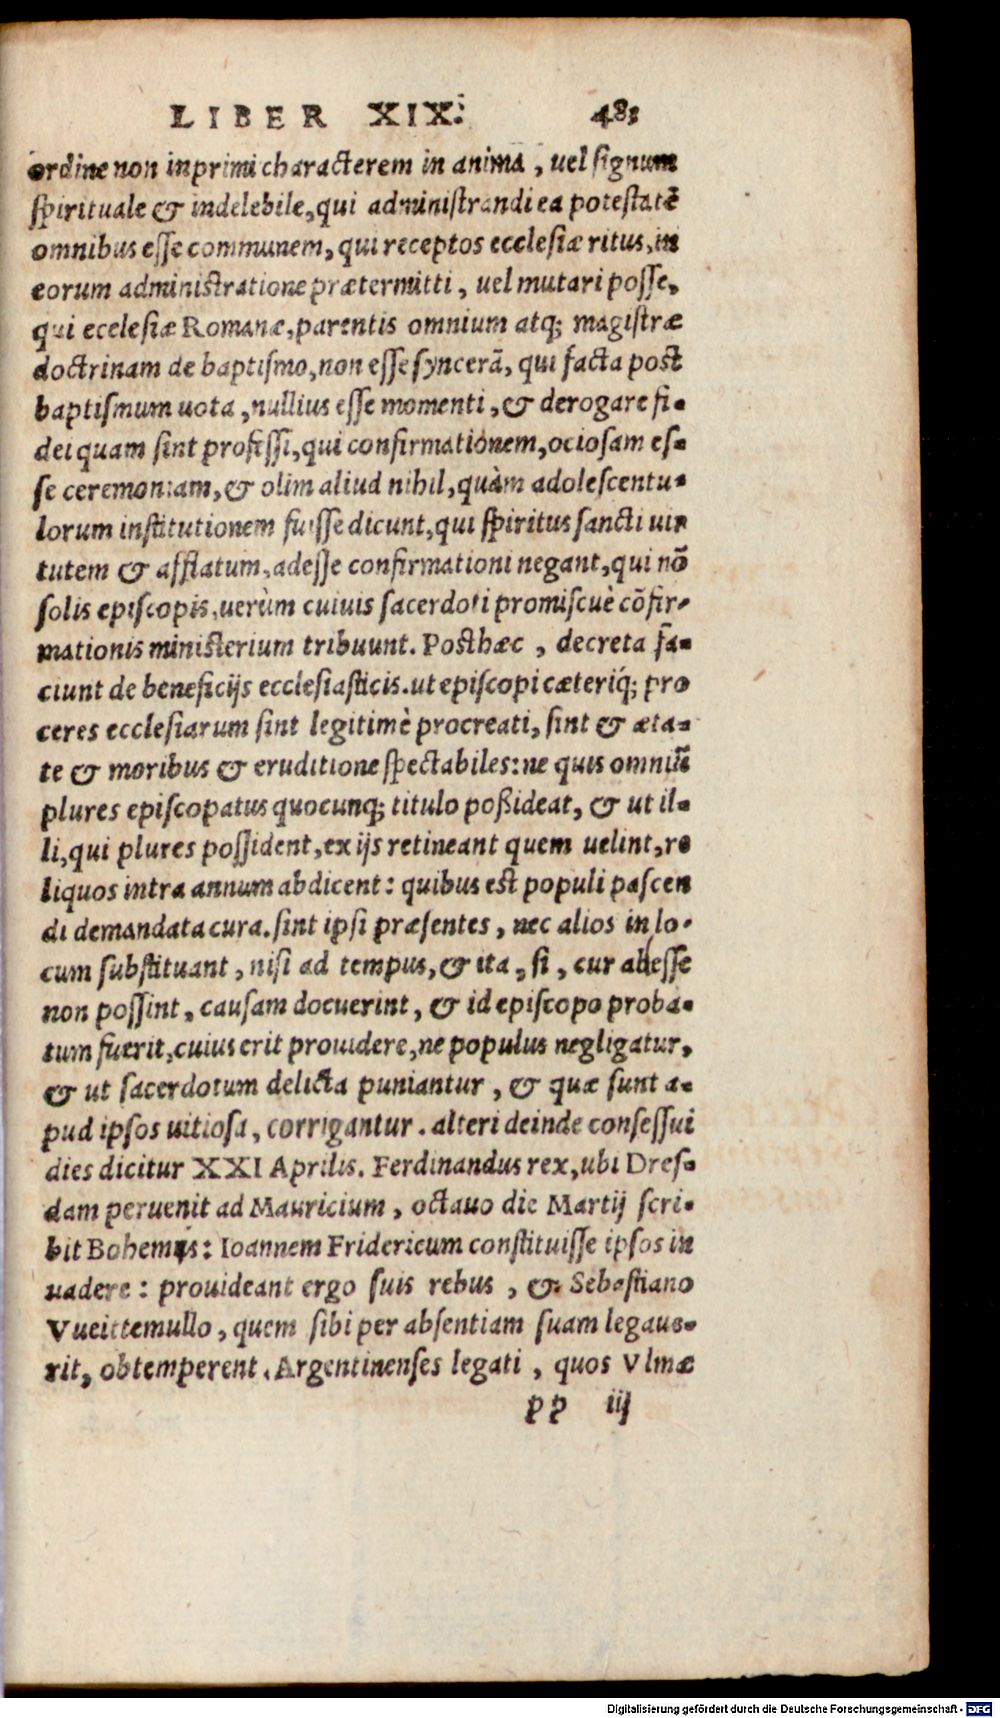 LIBER XIX. 481
ordine non inprimi characterem in anima, uel signum
spirituale & indelebile, qui administrandi ea potestatē
omnibus esse communem, qui receptos ecclesiæ ritus, in
eorum administratione prætermitti, uel mutari posse,
qui ecclesiæ Romanæ, parentis omnium atq; magistræ
doctrinam de baptismo, non esse syncerā, qui facta post
baptismum uota, nullius esse momenti, & derogare fi-
dei quam sint professi, qui confirmationem, ociosam es-
se ceremoniam, & olim aliud nihil, quàm adolescentu-
lorum institutionem fuisse dicunt, qui spiritus sancti uir
tutem & afflatum, adesse confirmationi negant, qui nō
solis episcopis, uerùm cuiuis sacerdoti promiscuè cōfir-
mationis ministerium tribuunt. Posthæc, decreta fa-
ciunt de beneficijs ecclesiasticis. ut episcopi cæteriq́; pro
ceres ecclesiarum sint legitimè procreati, sint & æta-
te & moribus & eruditione spectabiles: ne quis omniū
plures episcopatus quocunq; titulo poßideat, & ut il-
li, qui plures possident, ex ijs retineant quem uelint, re
liquos intra annum abdicent: quibus est populi pascen
di demandata cura. sint ipsi præsentes, nec alios in lo-
cum substituant, nisi ad tempus, & ita, si, cur abesse
non possint, causam docuerint, & id episcopo proba-
tum fuerit, cuius erit prouidere, ne populus negligatur,
& ut sacerdotum delicta puniantur, & quæ sunt a-
pud ipsos uitiosa, corrigantur. alteri deinde consessui
dies dicitur XXI Aprilis. Ferdinandus rex, ubi Dres-
dam peruenit ad Mauricium, octauo die Martij scri-
bit Bohemis: Ioannem Fridericum constituisse ipsos in
uadere: prouideant ergo suis rebus, & Sebastiano
Vueittemullo, quem sibi per absentiam suam legaue-
rit, obtemperent. Argentinenses legati, quos Vlmæ
pp iij
Digitalisierung gefördert durch die Deutsche Forschungsgemeinschaft - DFG